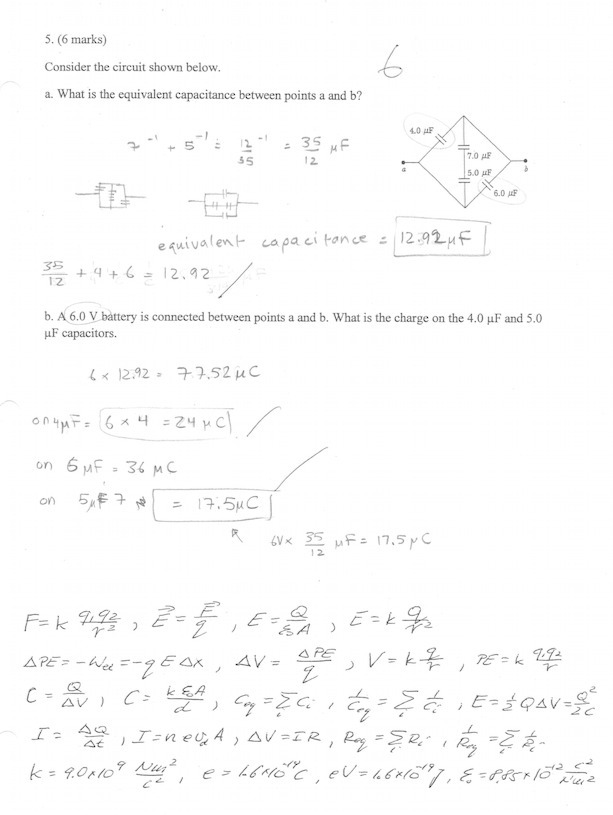 5. (6 marks)
6
Consider the circuit shown below.
a. What is the equivalent capacitance between points a and b?
7⁻¹ + 5⁻¹ = 12/35 ⁻¹ = 35/12 μF
4.0 μF
7.0 μF
a
5.0 μF
b
6.0 μF
equivalent capacitance = 12.92 μF
35/12 + 4 + 6 = 12.92
b. A 6.0 V battery is connected between points a and b. What is the charge on the 4.0 μF and 5.0
μF capacitors.
6 × 12.92 = 77.52 μC
on 4μF = 6 × 4 = 24 μC
on 6 μF = 36 μC
on 5μF 7 = 17.5μC
6V× 35/12 μF = 17.5 μC
F = k q₁q₂/r², E⃗ = F⃗/q, E = Q/ε₀A, E = k q/r²
ΔPE = -Wel = -qEΔx, ΔV = ΔPE/q, V = k q/r, PE = k q₁q₂/r
C = Q/ΔV, C = kε₀A/d, Ceq = Σᵢ Cᵢ, 1/Ceq = Σᵢ 1/Cᵢ, E = ½QΔV = Q²/2C
I = ΔQ/Δt, I = nevdA, ΔV = IR, Req = Σᵢ Rᵢ, 1/Req = Σᵢ 1/Rᵢ
k = 9.0×10⁹ Nm²/C², e = 1.6×10⁻¹⁹C, eV = 1.6×10⁻¹⁹J, ε₀ = 8.85×10⁻¹² C²/Nm²